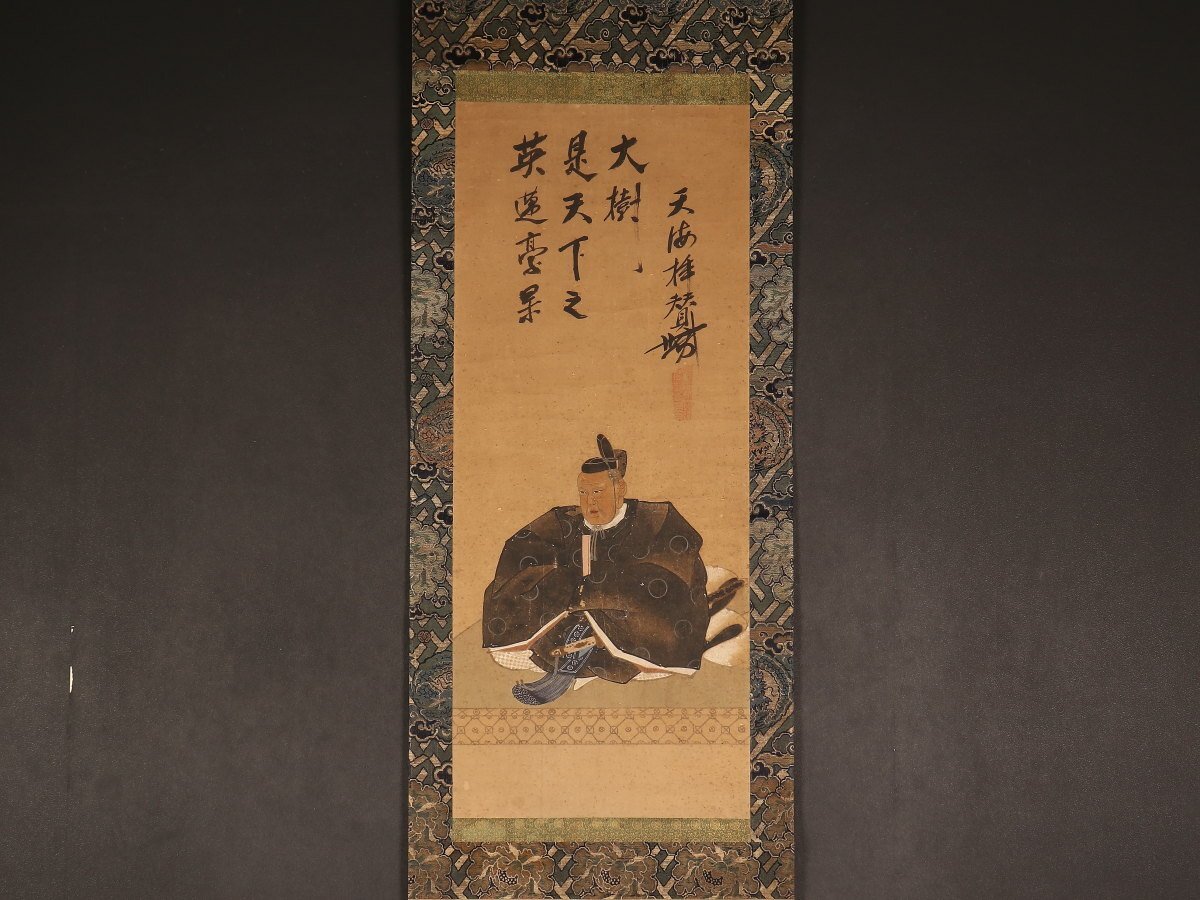 英邁豪
是天下之
大樹
天海拝賛